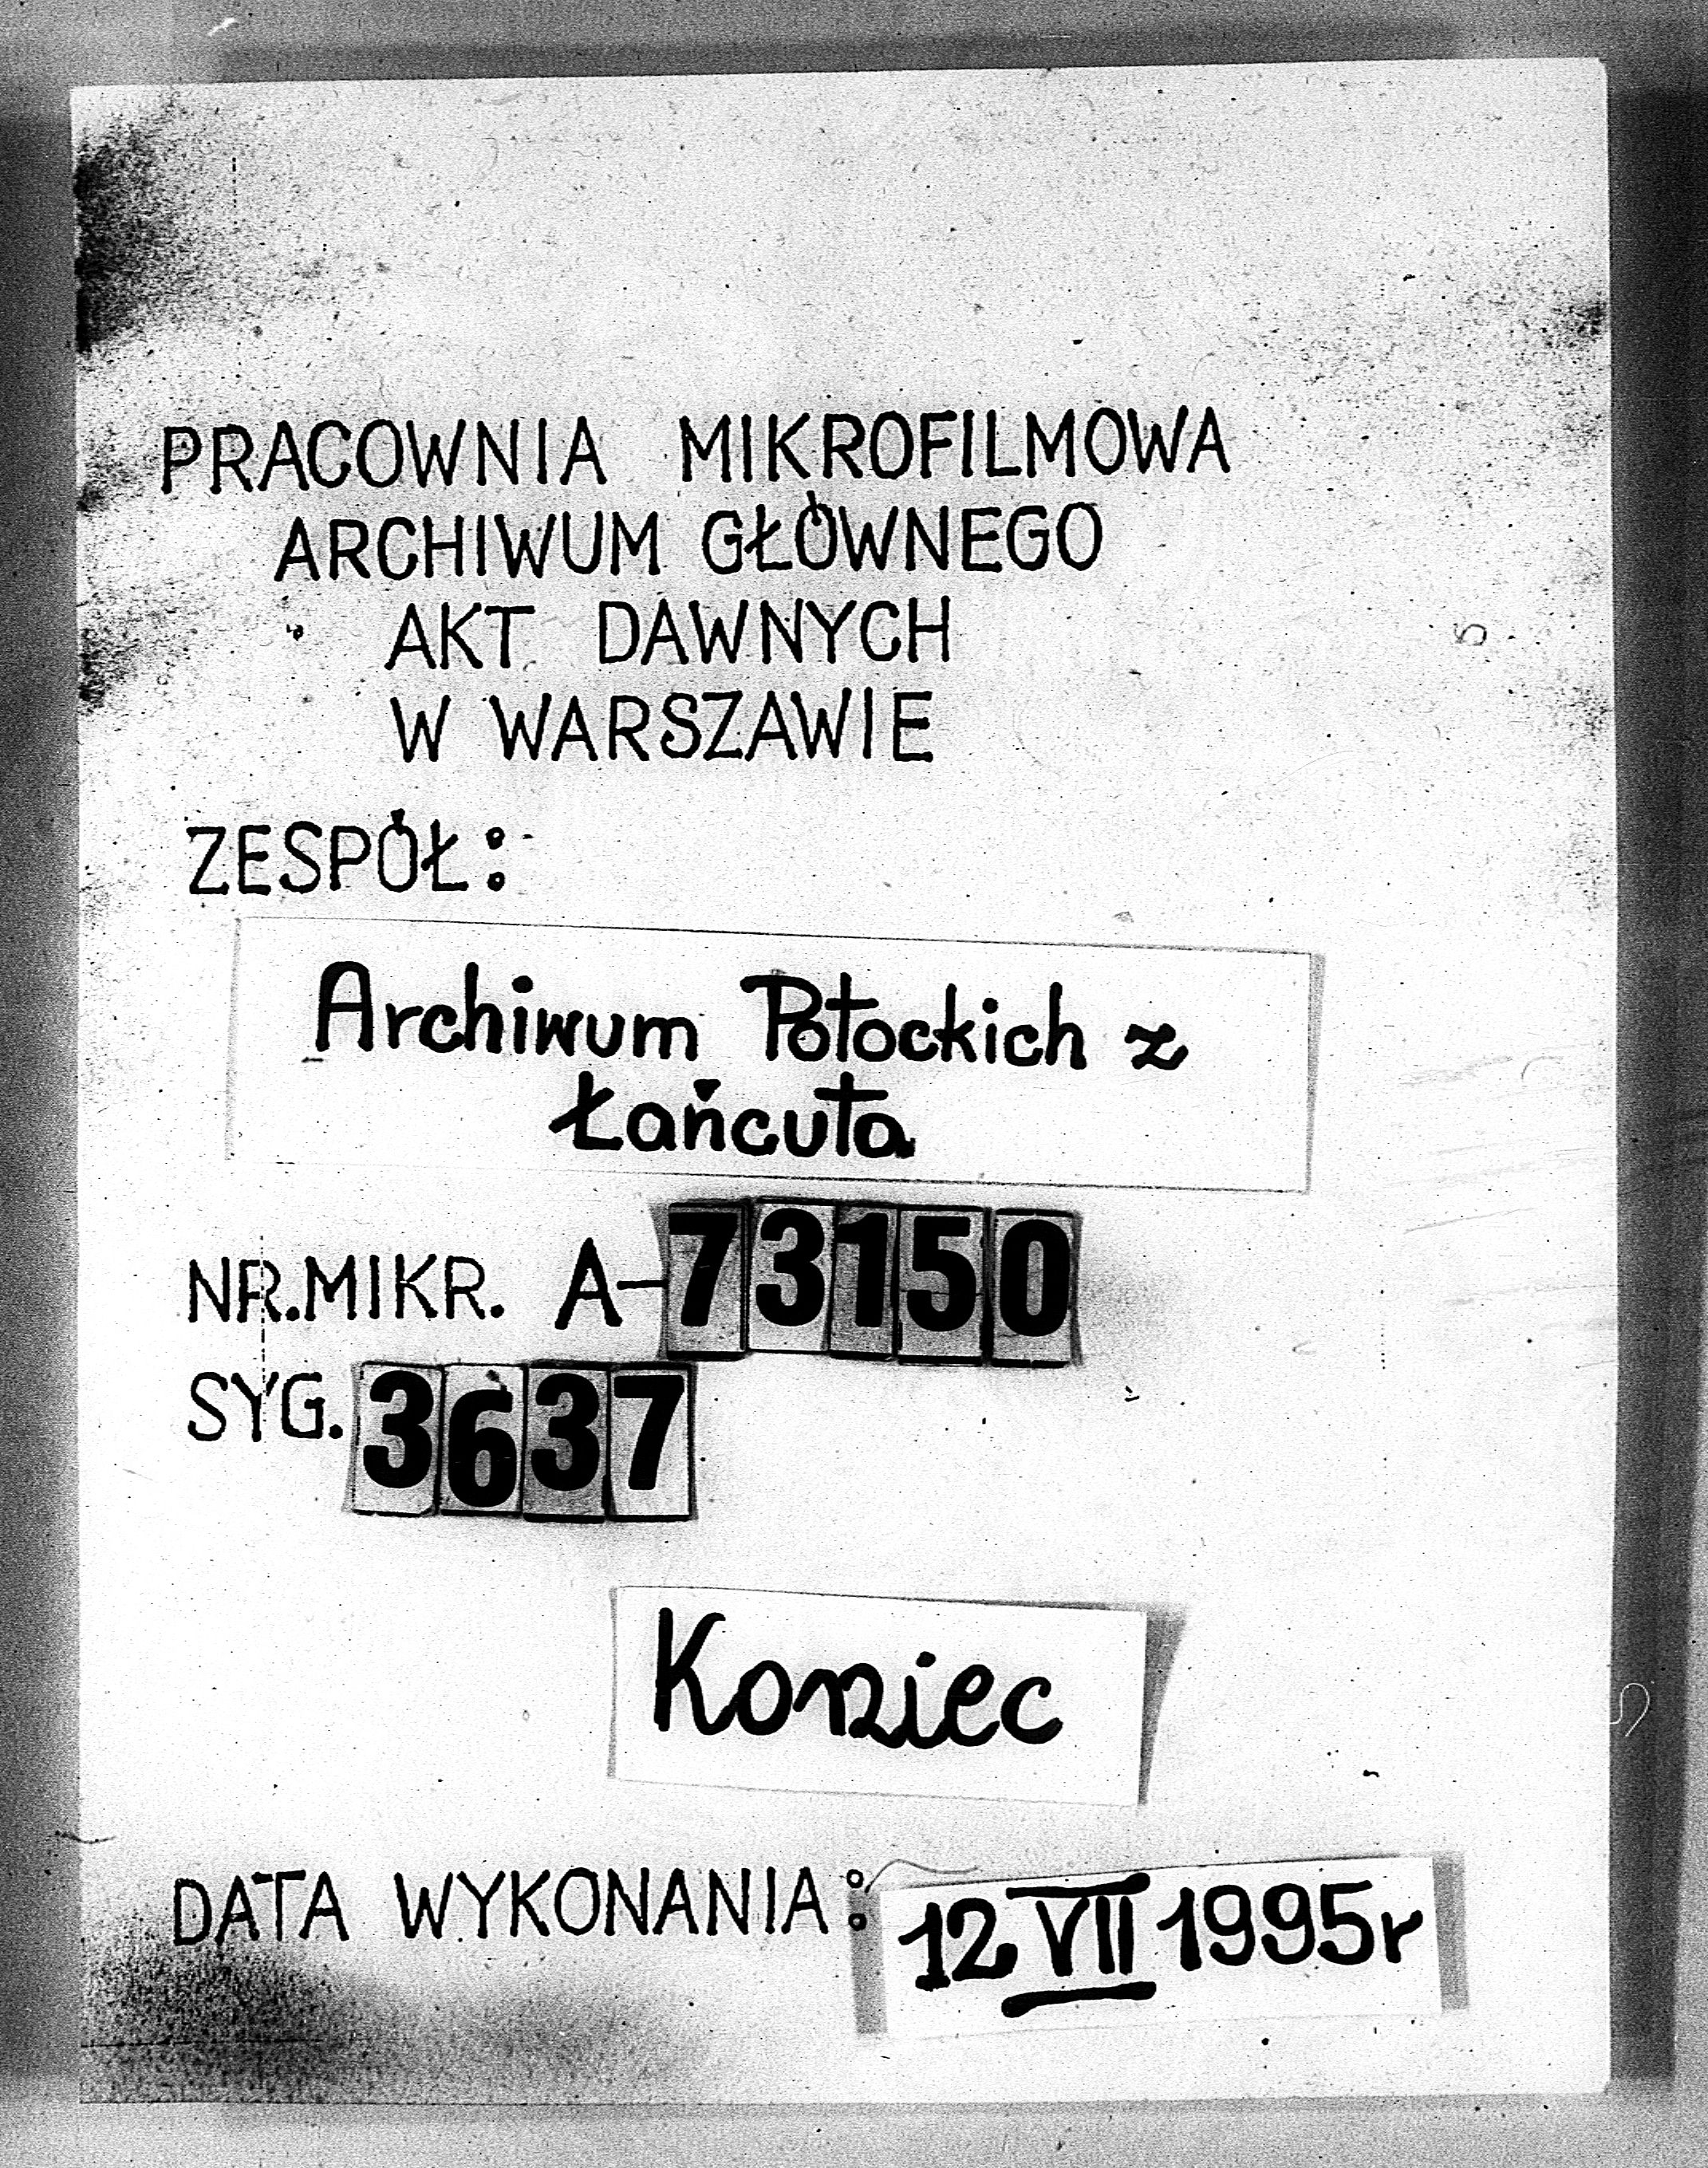 PRACOWNIA MIKROFILMOWA
ARCHIWUM GŁÓWNEGO
AKT DAWNYCH
W WARSZAWIE
ZESPÓŁ:
Archiwum Potockich z
Łańcuta
NR.MIKR. A-73150
SYG. 3637
Koniec
DATA WYKONANIA: 12 VII 1995r